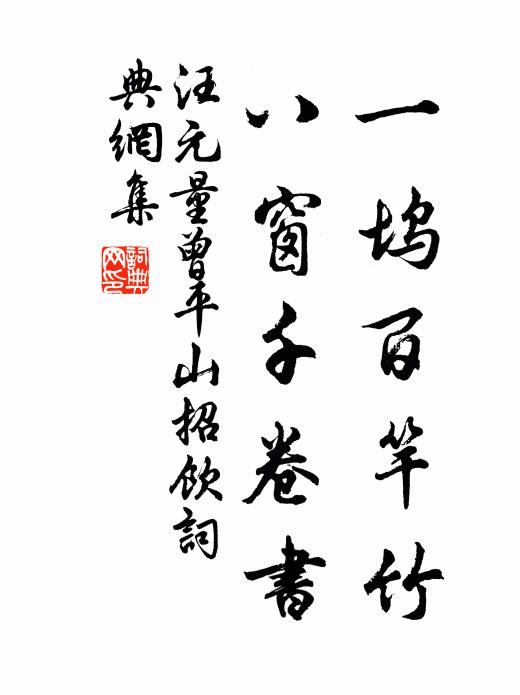 一塢百竿竹
八窗千卷書
汪元量曾平山招飲詞
典網集
詞典
网印